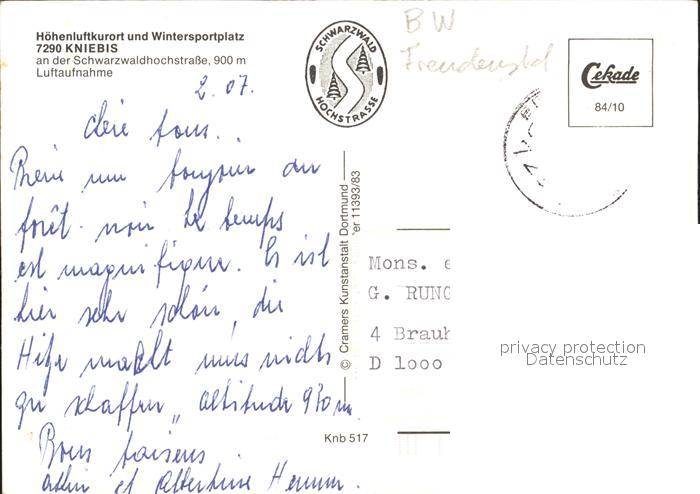 Höhenluftkurort und Wintersportplatz
7290 KNIEBIS
an der Schwarzwaldhochstraße, 900 m
Luftaufnahme
2.07.
tous..
un bonjour du
forêt noir Le temps
est magnifique. Es ist
hier sehr schön, die
Hitze macht uns nichts
zu schaffen „ altitude 930 m.
Bons baisers
et Albertine
SCHWARZWALD
HOCHSTRASSE
BW
Freudenstd
Cekade
84/10
© Cramers Kunstanstalt Dortmund
er 11393/83
Mons. e
G. RUNG
4 Brauh
D 1000
privacy protection
Datenschutz
Knb 517